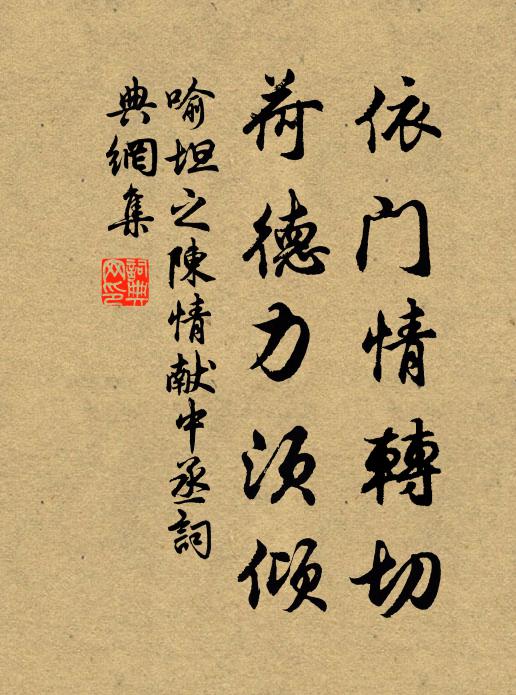 依门情轉切
荷德力須傾
喻坦之陳情献中丞詞
典網集
詞典
网印